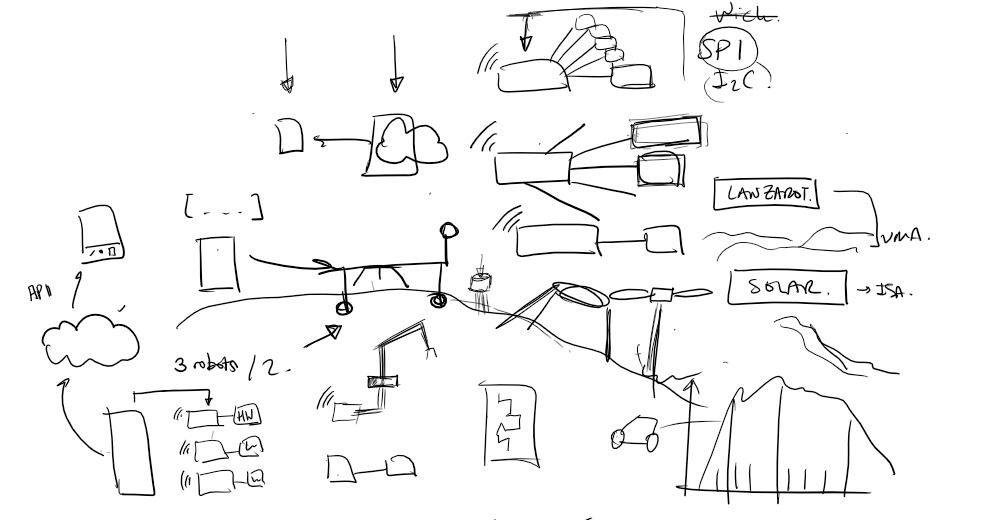 Wich.
SPI
I2C.
[ - - - - ]
LANZAROT.
UMA.
SOLAR. → ISA.
API
3 robots / 2.
HW